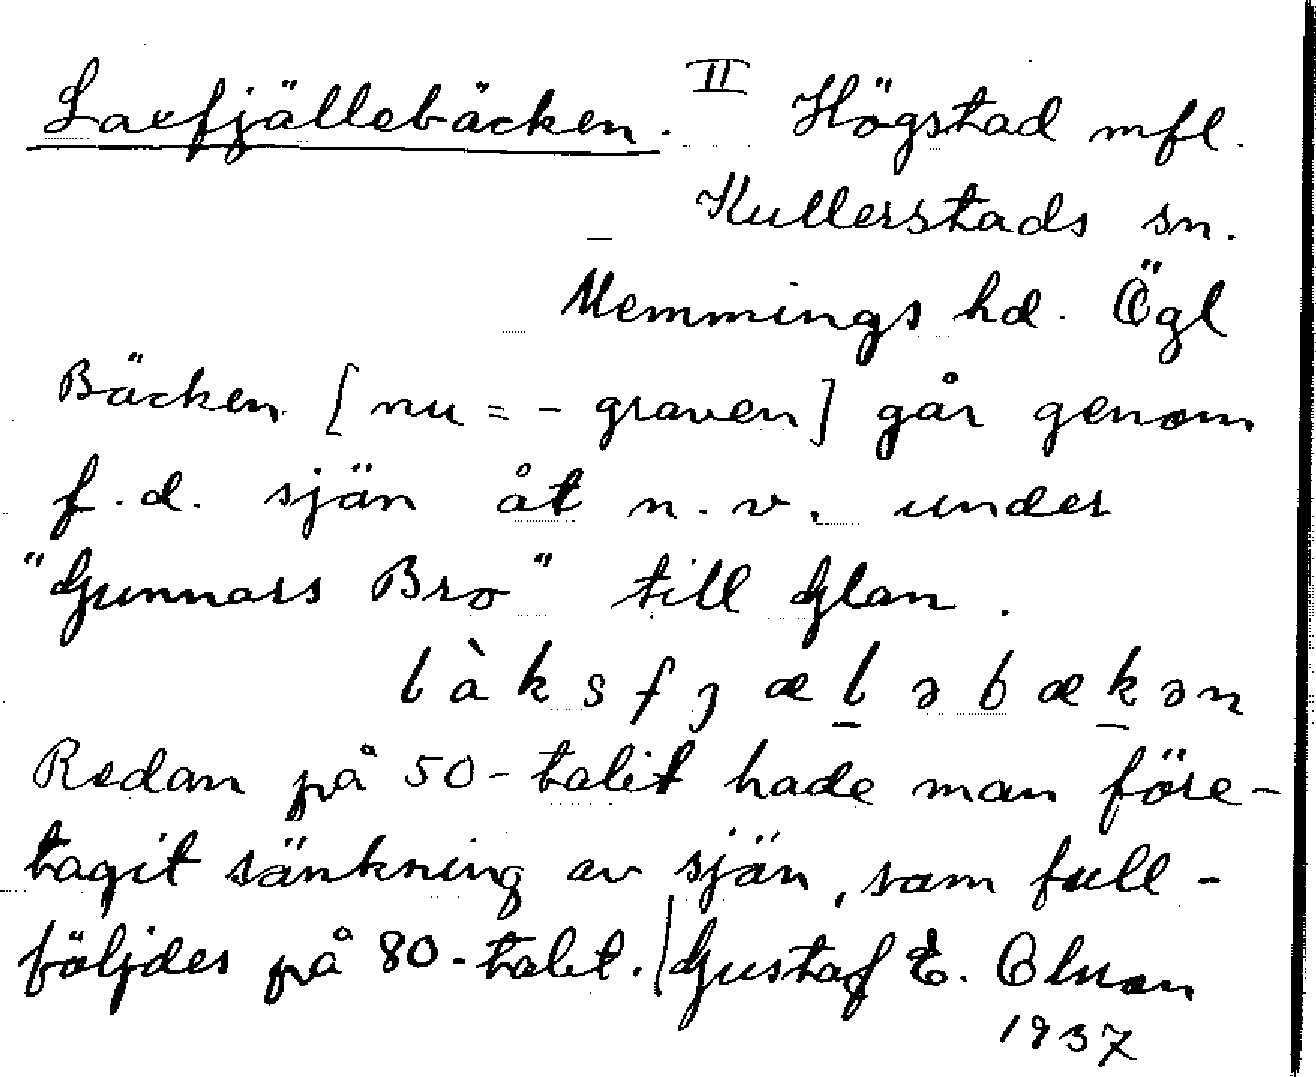 Laxfjällebäcken. II Högstad mfl.
Kullerstads sn.
Memmings hd. Ögl
Bäcken [nu = - graven] går genom
f.d. sjön åt n.v. under
"Gunnars Bro" till Glan.
làksfjælə bækən
Redan på 50-talet hade man före-
tagit sänkning av sjön, som full-
följdes på 80-talet. / Gustaf E.
1937